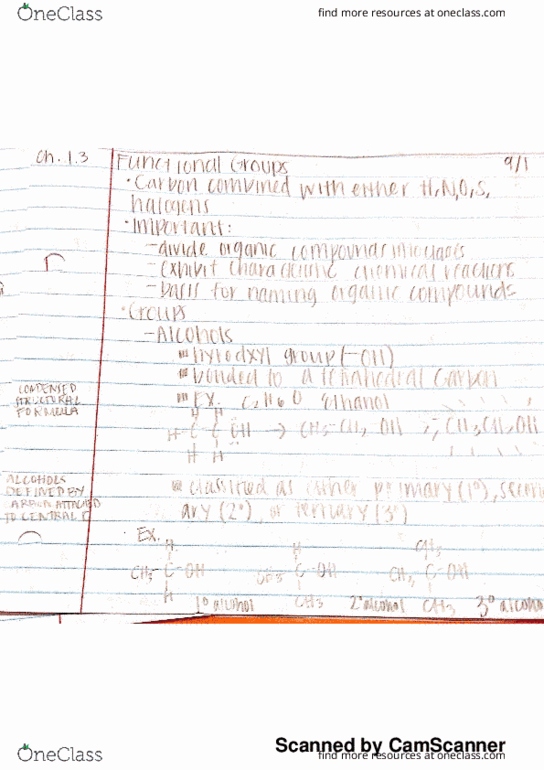 OneClass
find more resources at oneclass.com
Ch. 1.3
Functional Groups
9/1
• Carbon combined with either H, N, O, S,
halogens
• Important:
- divide organic compounds into classes
- exhibit characteristic chemical reactions
- basis for naming organic compounds
• Groups
- Alcohols
hyrodxyl group (-OH)
bonded to a tetrahedral carbon
CONDENSED
STRUCTURAL
FORMULA
Ex. C2H6O ethanol
H H
H-C-C-ÖH → CH3-CH2-OH ; CH3CH2OH
H H
ALCOHOLS
DEFINED BY
CARBON ATTACHED
TO CENTRAL C
classified as either primary (1°), second
ary (2°), or tertiary (3°)
Ex.
H H CH3
CH3-C-OH CH3-C-OH CH3-C-OH
H CH3 CH3
1° alcohol 2° alcohol 3° alcoho
Scanned by CamScanner
OneClass
find more resources at oneclass.com